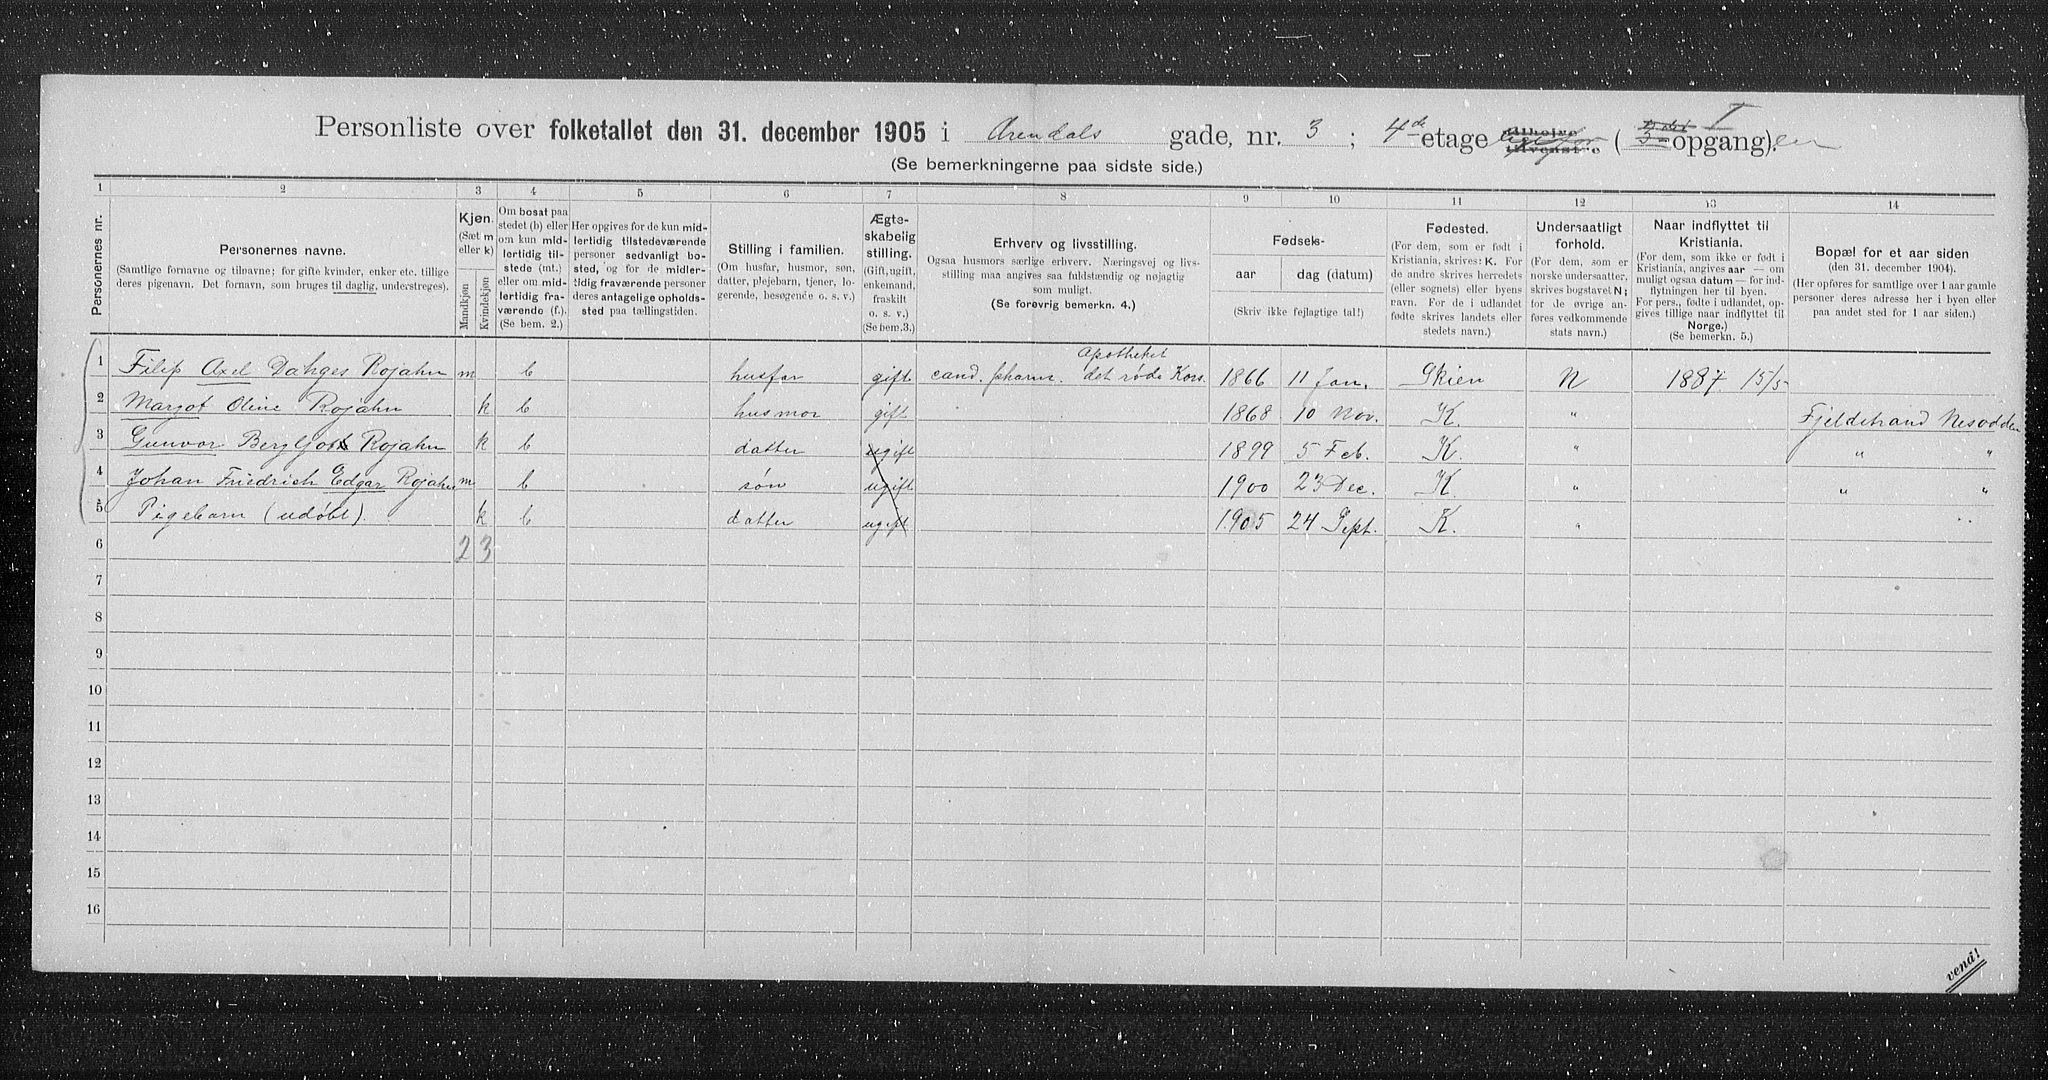 Personliste over folketallet den 31. december 1905 i Arendals gade, nr. 3; 4de etage ( I opgang).
(Se bemerkningerne paa sidste side.)
1 2 3 4 5 6 7 8 9 10 11 12 13 14
Personernes nr.
Personernes navne.
(Samtlige fornavne og tilnavne; for gifte kvinder, enker etc. tillige
deres pigenavn. Det fornavn, som bruges til daglig, understreges).
Kjøn.
(Sæt m
eller k)
Mandkjøn
Kvindekjøn
Om bosat paa
stedet (b) eller
om kun mid-
lertidig til-
stede (mt.)
eller om mid-
lertidig fra-
værende (f.).
(Se bem. 2.)
Her opgives for de kun mid-
lertidig tilstedeværende
personer sedvanligt bo-
sted, og for de midler-
tidig fraværende personer
deres antagelige opholds-
sted paa tællingstiden.
Stilling i familien.
(Om husfar, husmor, søn,
datter, plejebarn, tjener, lo-
gerende, besøgende o. s. v.)
Ægte-
skabelig
stilling.
(Gift, ugift,
enkemand,
fraskilt
o. s. v.)
(Se bem.3.)
Erhverv og livsstilling.
Ogsaa husmors særlige erhverv. Næringsvej og livs-
stilling maa angives saa fuldstændig og nøjagtig
som muligt.
(Se forøvrig bemerkn. 4.)
Fødsels-
aar dag (datum)
(Skriv ikke fejlagtige tal!)
Fødested.
(For dem, som er født i
Kristiania, skrives: K. For
de andre skrives herredets
(eller sognets) eller byens
navn. For de i udlandet
fødte skrives landets eller
stedets navn.)
Undersaatligt
forhold.
(For dem, som er
norske undersaatter,
skrives bogstavet N;
for de øvrige an-
føres vedkommende
stats navn.)
Naar indflyttet til
Kristiania.
(For dem, som ikke er født i
Kristiania, angives aar — om
muligt ogsaa datum — for ind-
flytningen her til byen.
For pers., fødte i udlandet, op-
gives tillige naar indflyttet til
Norge.)
(Se bemerkn. 5.)
Bopæl for et aar siden
(den 31. december 1904.)
(Her opføres for samtlige over 1 aar gamle
personer deres adresse her i byen eller
paa andet sted for 1 aar siden.)
Apotheket
1 Filip Axel Dahges Rojahn m b husfar gift cand. pharm. det røde Kors. 1866 11 Jan. Skien N 1887 15/5
2 Margot Oline Rojahn k b husmor gift 1868 10 Nov. K. " Fjeldstrand Nesodden
3 Gunvor Bergljot Rojahn k b datter ugift 1899 5 Feb. K. " " "
4 Johan Friedrich Edgar Rojahn m b søn ugift 1900 23 Dec. K. " " "
5 Pigebarn (udøbt). k b datter ugift 1905 24 Sept. K. " "
6 2 3
7
8
9
10
11
12
13
14
15
16
vend!